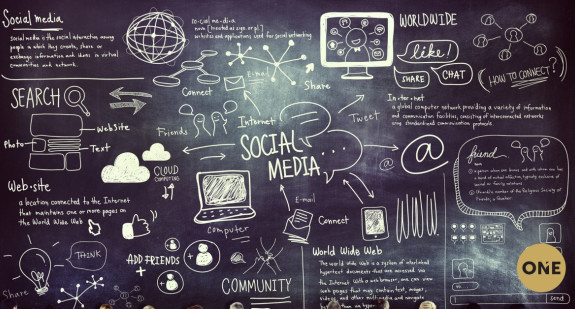 Social media
Social media is the social interaction among
people in which they create, share or
exchange information and ideas in virtual
communities and network.
so·cial me·di·a
noun [treated as sign. or pl.]
websites and applications used for social networking
WORLDWIDE
like!
SHARE
CHAT
HOW TO CONNECT?
E-mail
Connect
Share
SEARCH
Website
Photo
Text
Friends
Internet
Tweet
SOCIAL
MEDIA
In·ter·net
a global computer network providing a variety of information
and communication facilities, consisting of interconnected networks
using standardized communication protocols.
CLOUD
COMPUTING
@
friend
Web·site
a location connected to the Internet
that maintains one or more pages on
the World Wide Web
computer
E-mail
Connect
THINK
Share
ADD FRIENDS
+
+
COMMUNITY
World Wide Web
The world wide web is a system of interlinked
hypertext documents that are accessed via
the Internet. With a web browser, one can view
web pages that may contain text, images,
videos, and other multimedia and navigate
ONE
Send